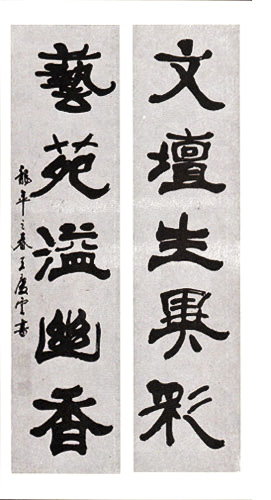 文壇生異彩
藝苑溢幽香
龍年之春王慶雲書